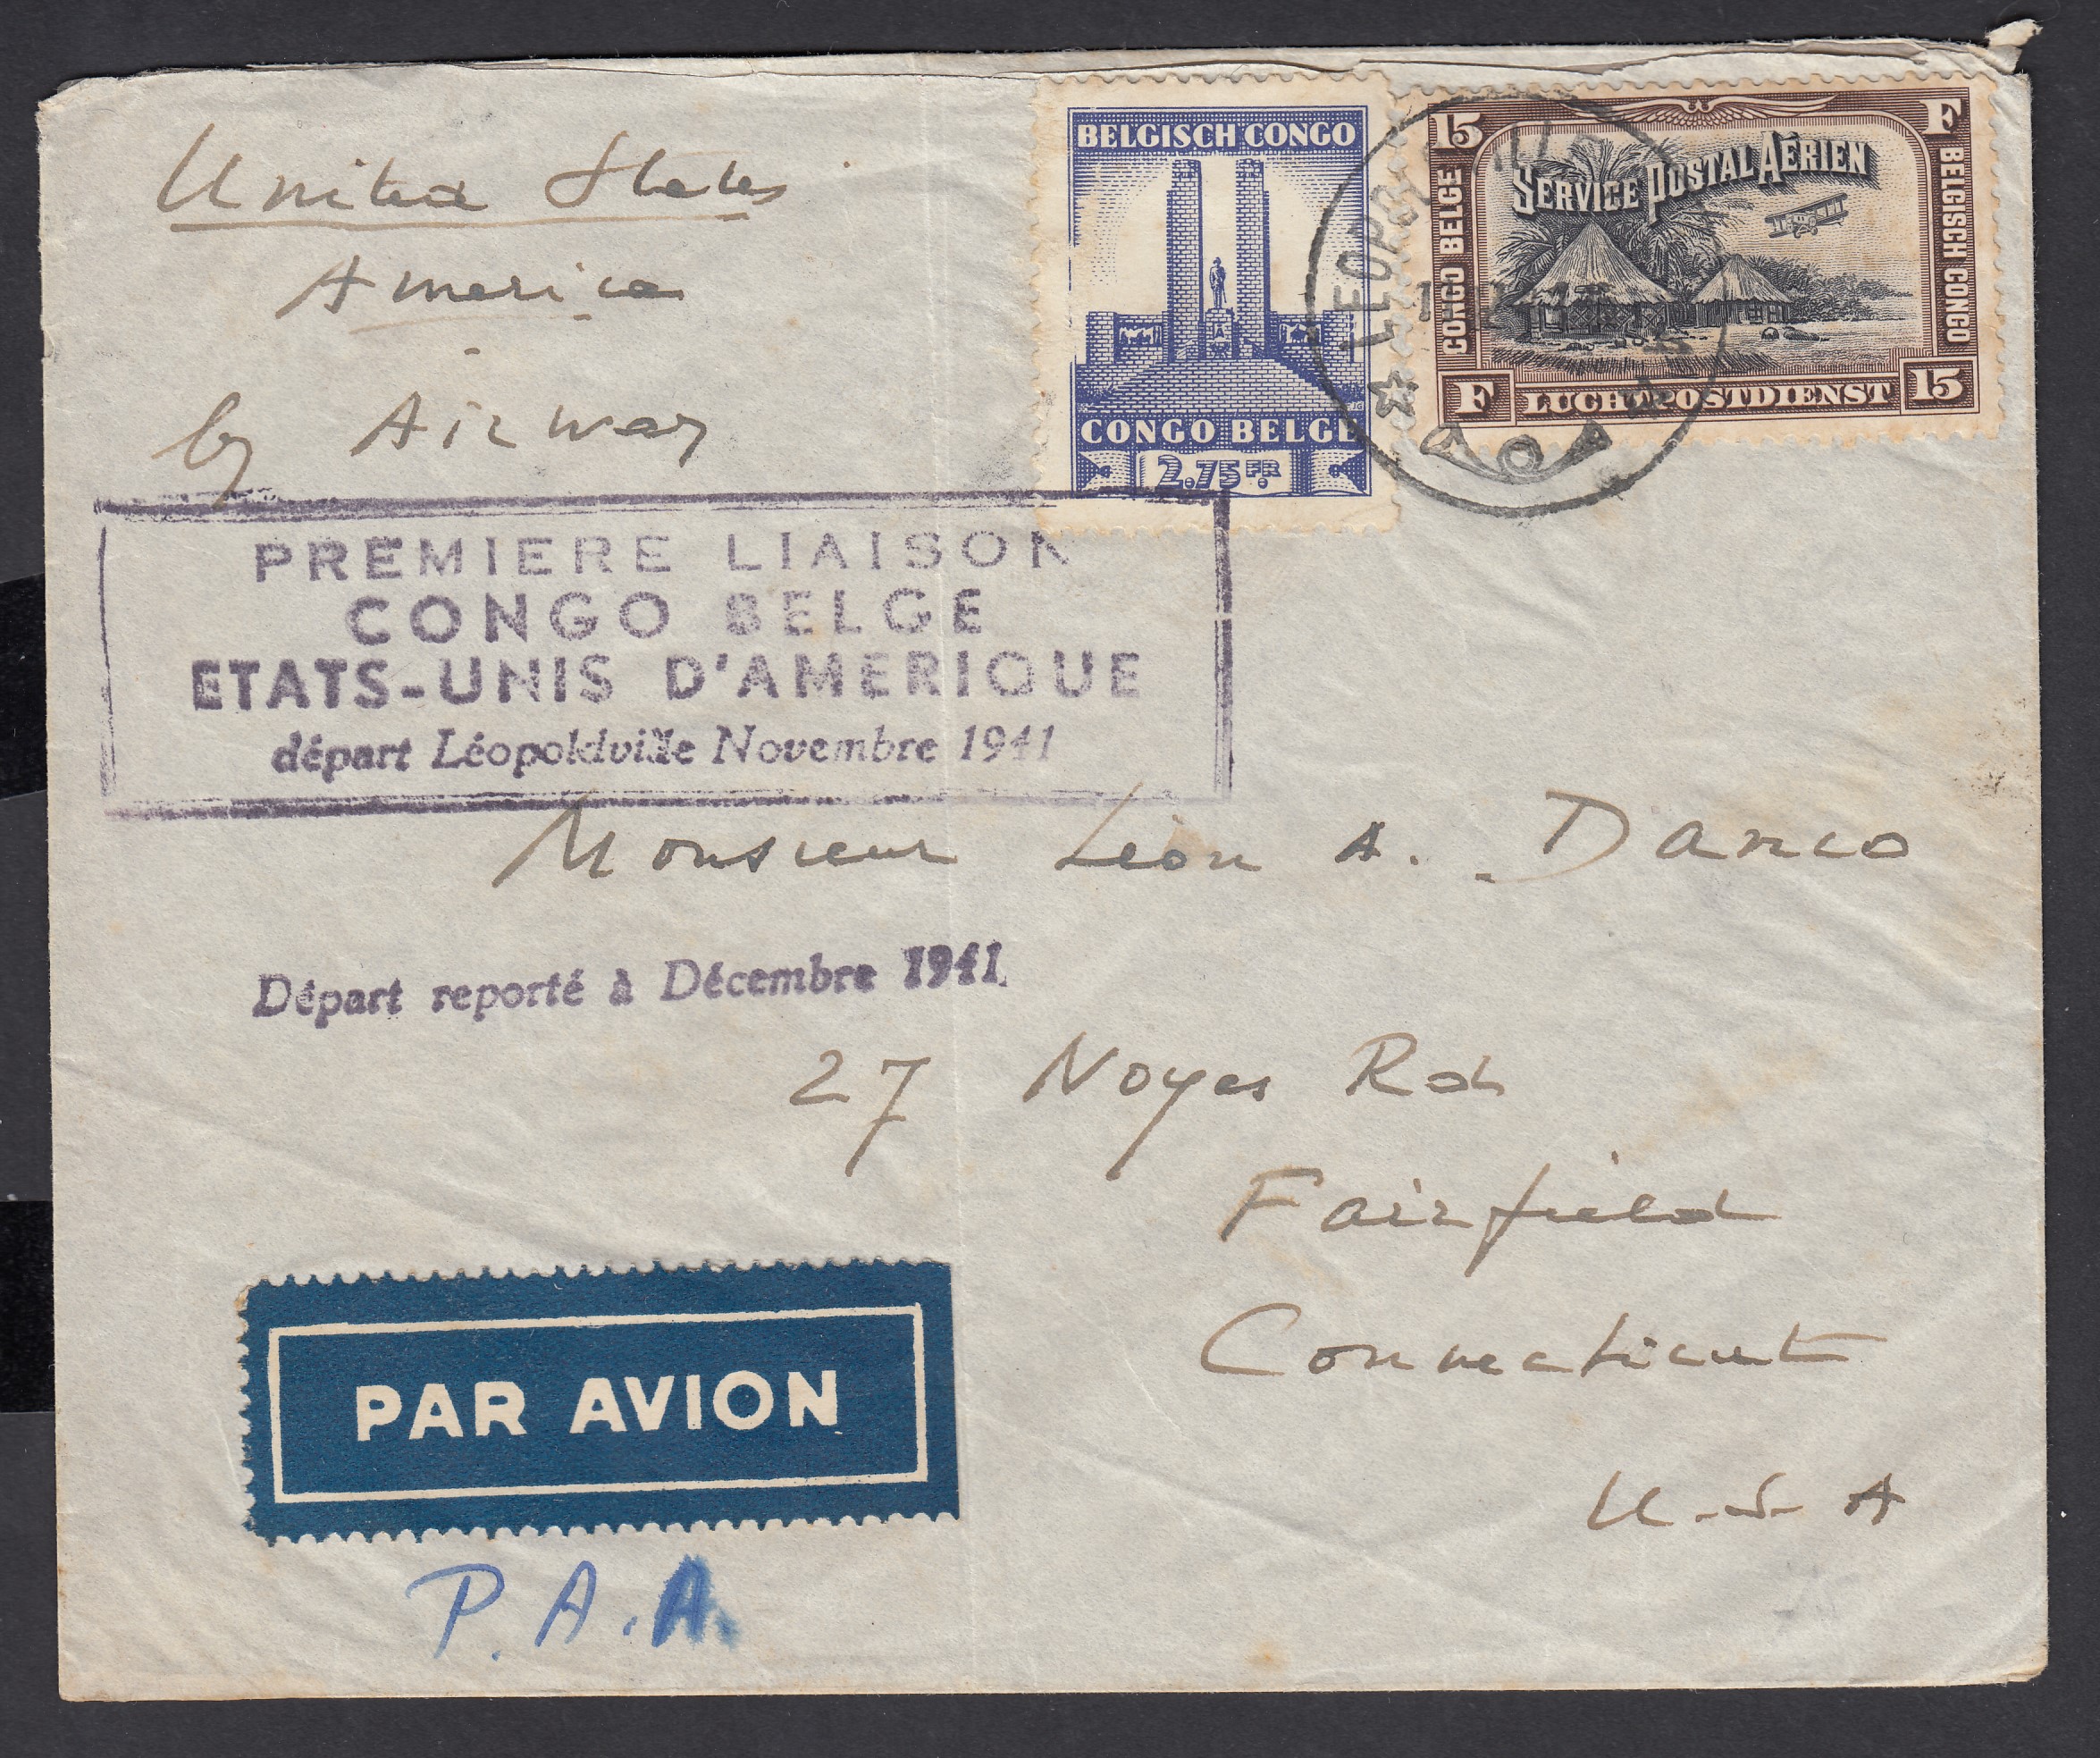 United States
America
by Airway
BELGISCH CONGO
CONGO BELGE
2.75 FR.
15 F
SERVICE POSTAL AÉRIEN
CONGO BELGE
BELGISCH CONGO
F LUCHTPOSTDIENST 15
PREMIERE LIAISON
CONGO BELGE
ETATS-UNIS D'AMERIQUE
départ Léopoldville Novembre 1941
Monsieur Léon A. Danco
Départ reporté à Décembre 1941
27 Noyes Rd
Fairfield
Connecticut
U.S.A
PAR AVION
P.A.A.